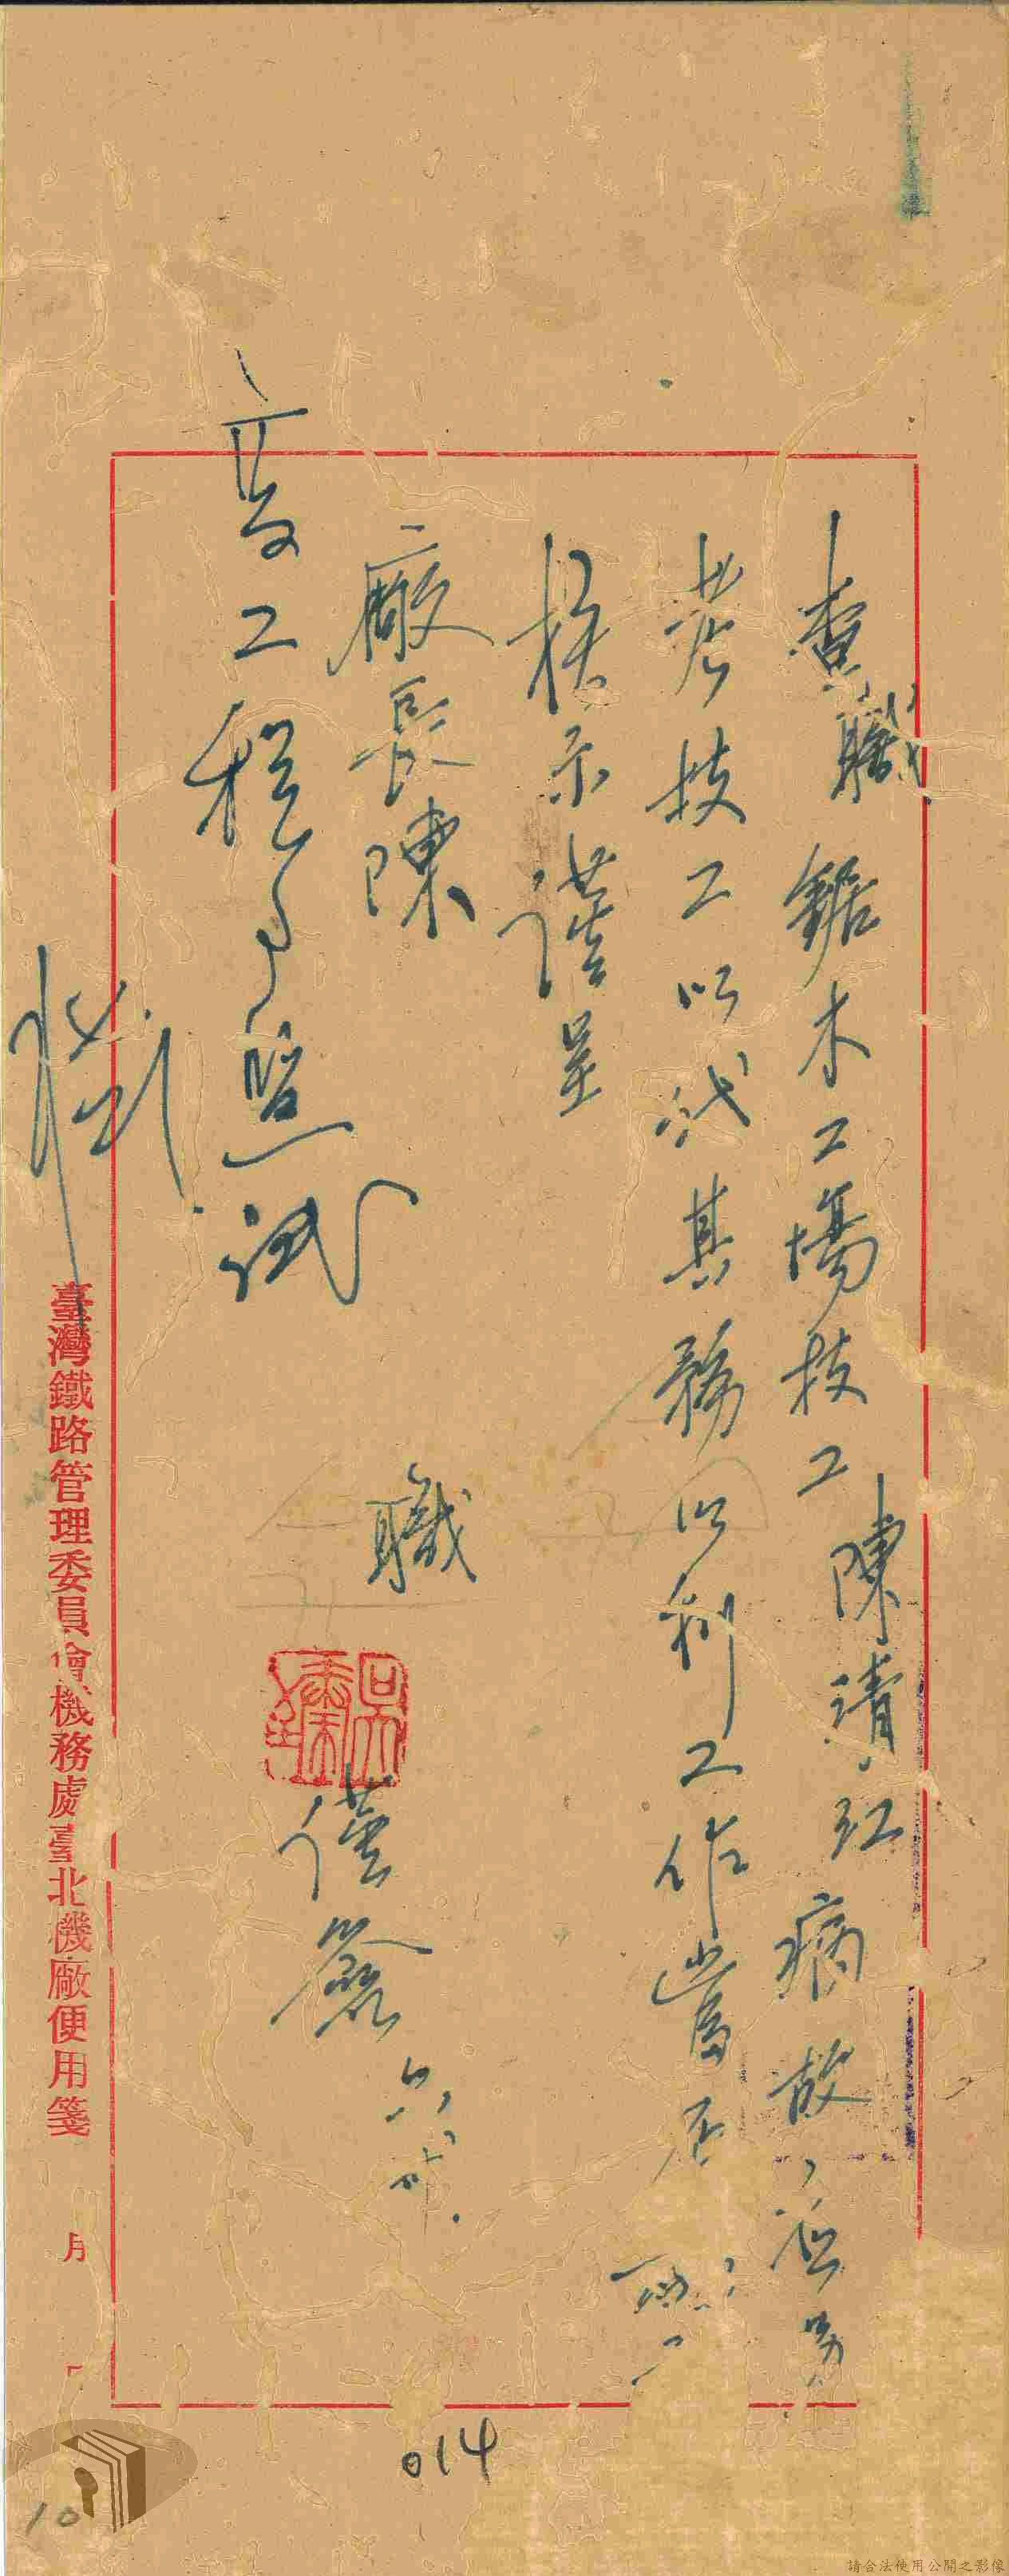 查職鋸木工場技工陳清江病故，應另
考技工以代其務以利工作當否
核示謹呈
廠長陳
職
謹簽 六
工程司
試
臺灣鐵路管理委員會機務處臺北機廠便用箋
月
014
10
請合法使用公開之影像